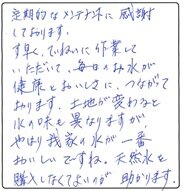 定期的なメンテナンスに感謝
しております。
す早く、ていねいに作業して
いただいて、毎日のお水が
健康とおいしさに、つながって
おります。土地が変わると
水の味も異なりますが、
やはり我家の水が一番
おいしいですね。天然水を
購入しなくてよいのが助かります。